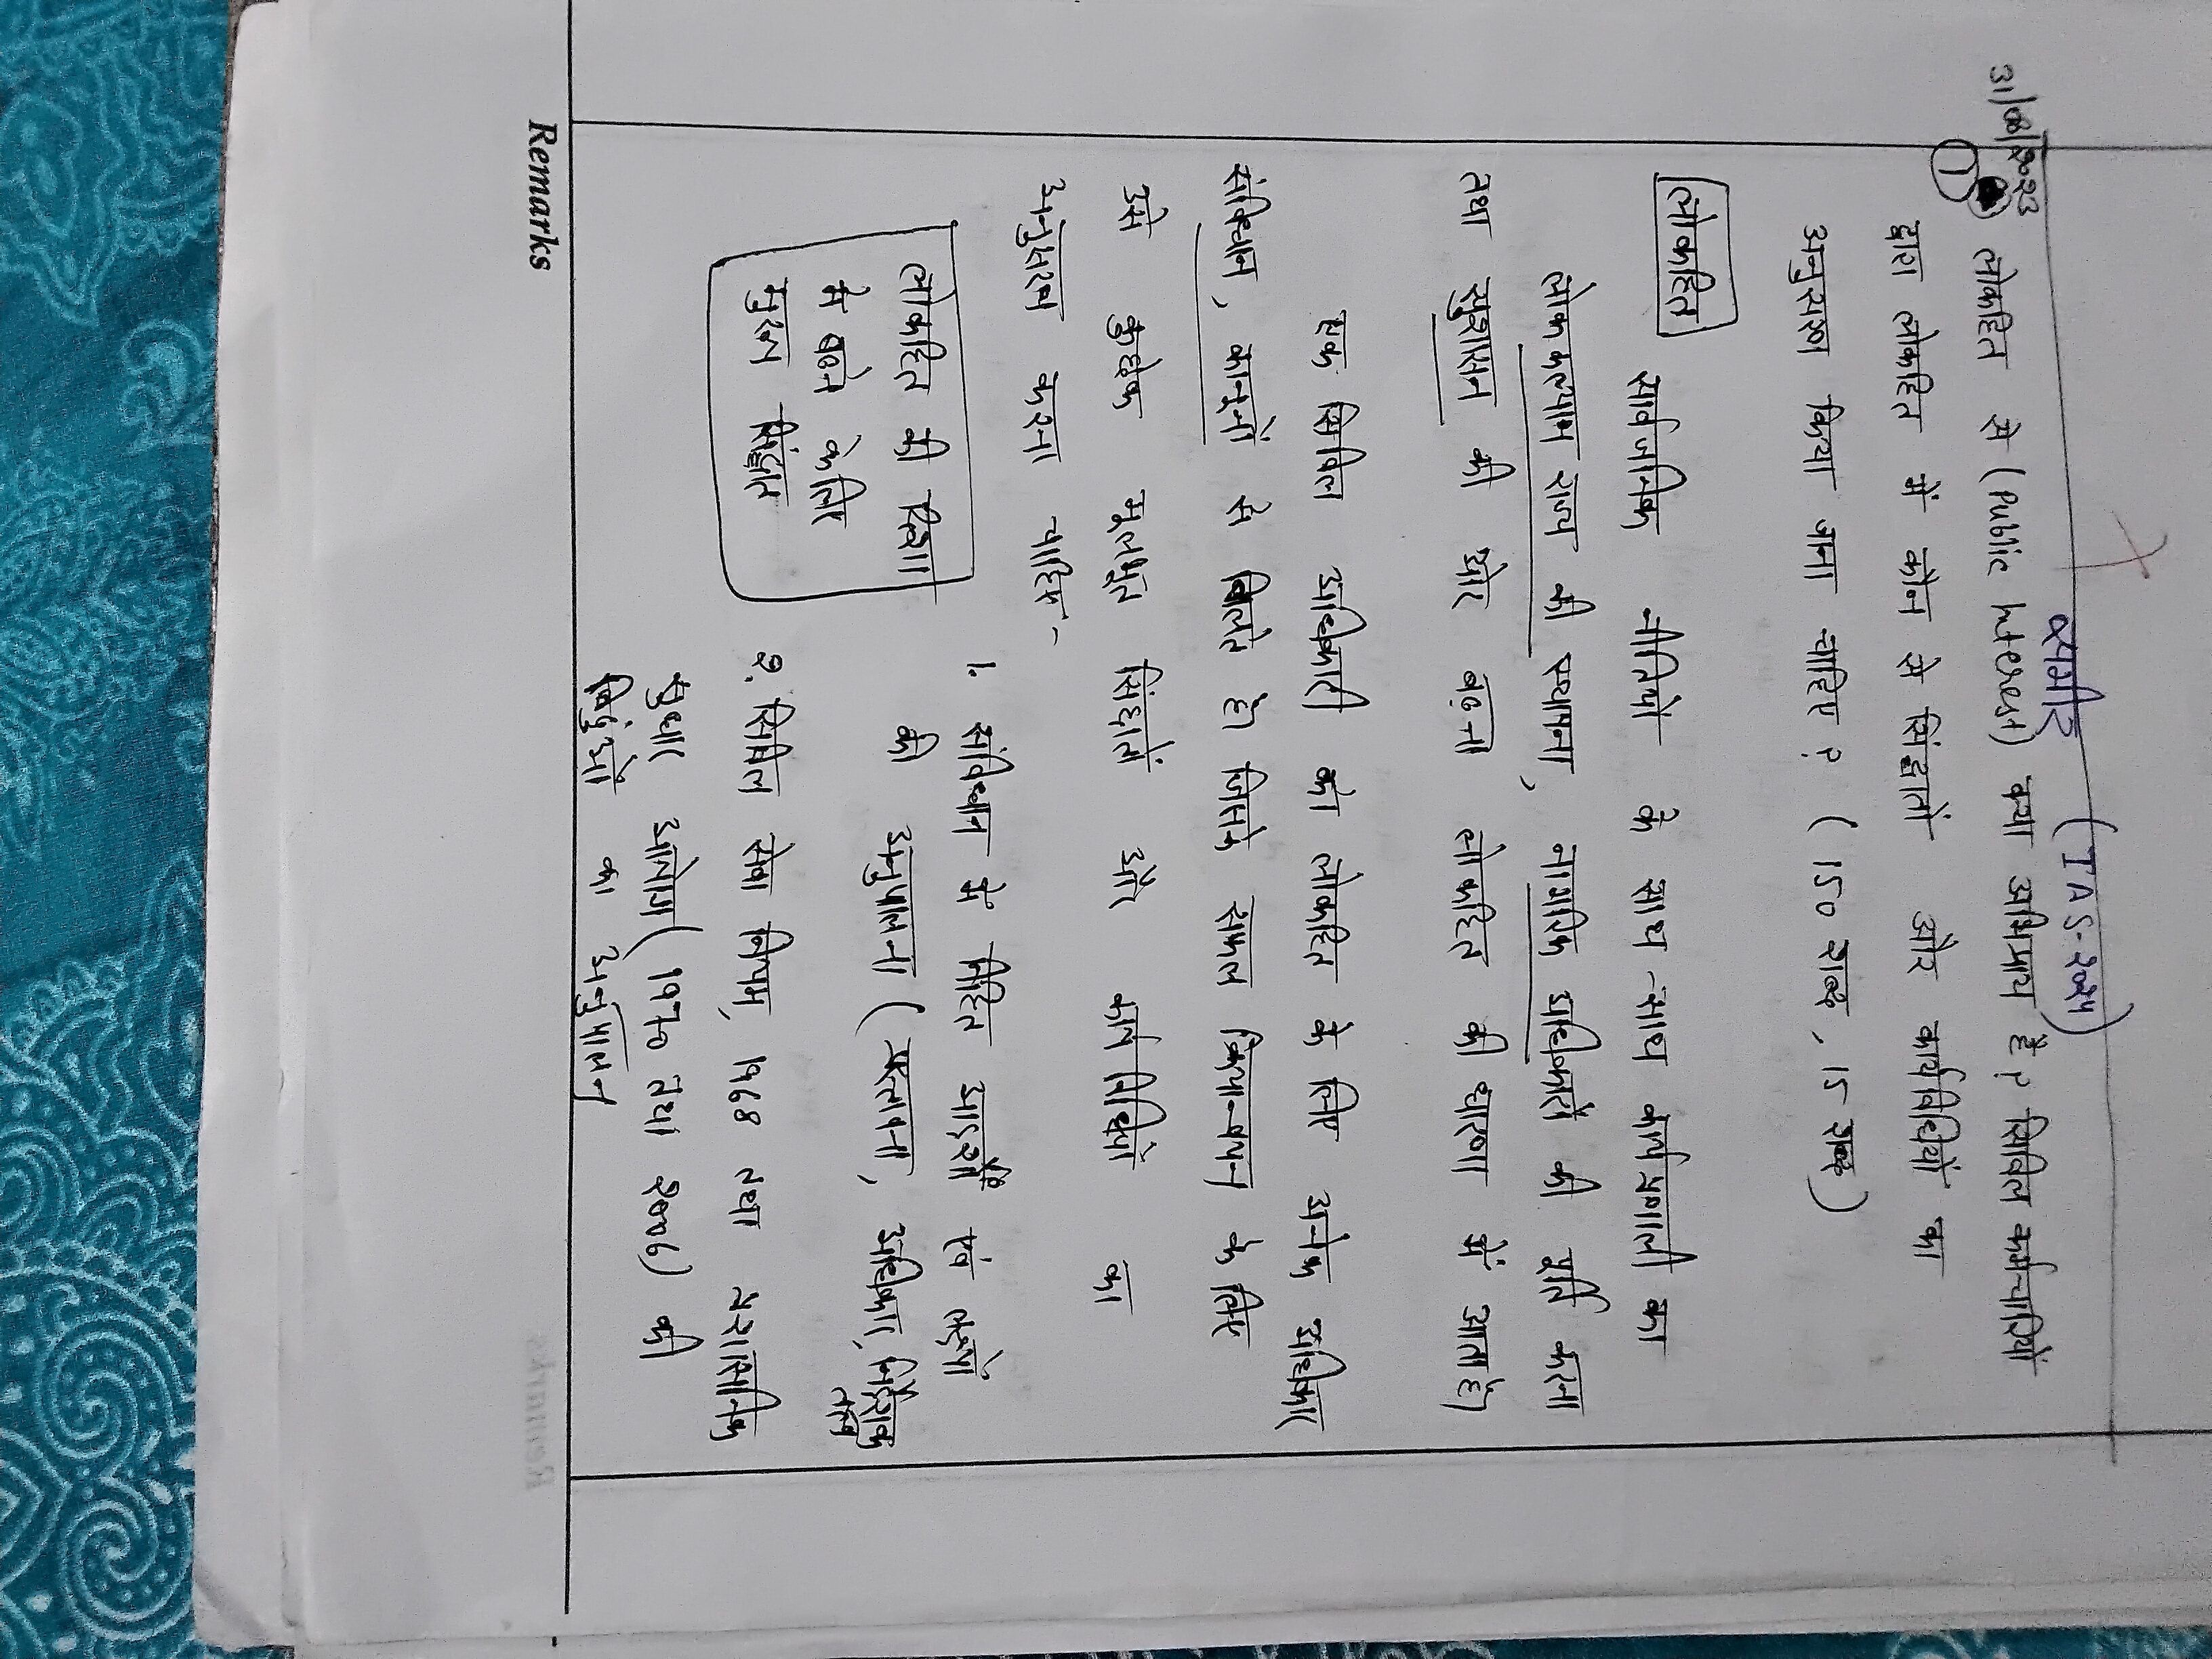 31/08/2023
समीर (IAS-2024)
① लोकहित से (Public Interest) क्या अभिप्राय है? सिविल कर्मचारियों
द्वारा लोकहित में कौन से सिंद्वातों और कार्यविधियों का
अनुसरण किया जाना चाहिए? (150 शब्द, 15 अंक)
लोकहित
सार्वजनिक नीतियों के साथ-साथ कार्यप्रणाली का
लोककल्याण राज्य की स्थापना, नागरिक अधिकारों की पूर्ति करना
तथा सुशासन की ओर बढ़ना लोकहित की धारणा में आता है।
एक सिविल अधिकारी को लोकहित के लिए अनेक अधिकार
संविधान, कानूनों से मिलते है। जिसके सफल क्रियान्वयन के लिए
उसे कुछेक मूलभूत सिंद्दातों और कार्यविधियों का
अनुसरण करना चाहिए-
लोकहित की दिशा
मे बढ़ने के लिए
मुख्य सिंद्वात
1. संविधान में निहित आदर्शों एवं लक्ष्यों
की अनुपालना (प्रस्तावना, अधिकार, निर्देशक
तत्व
2. सिविल सेवा नियम, 1968 तथा प्रशासनिक
सुधार आयोग (1970 तथा 2006) की
बिंदुओं का अनुपालन
Remarks